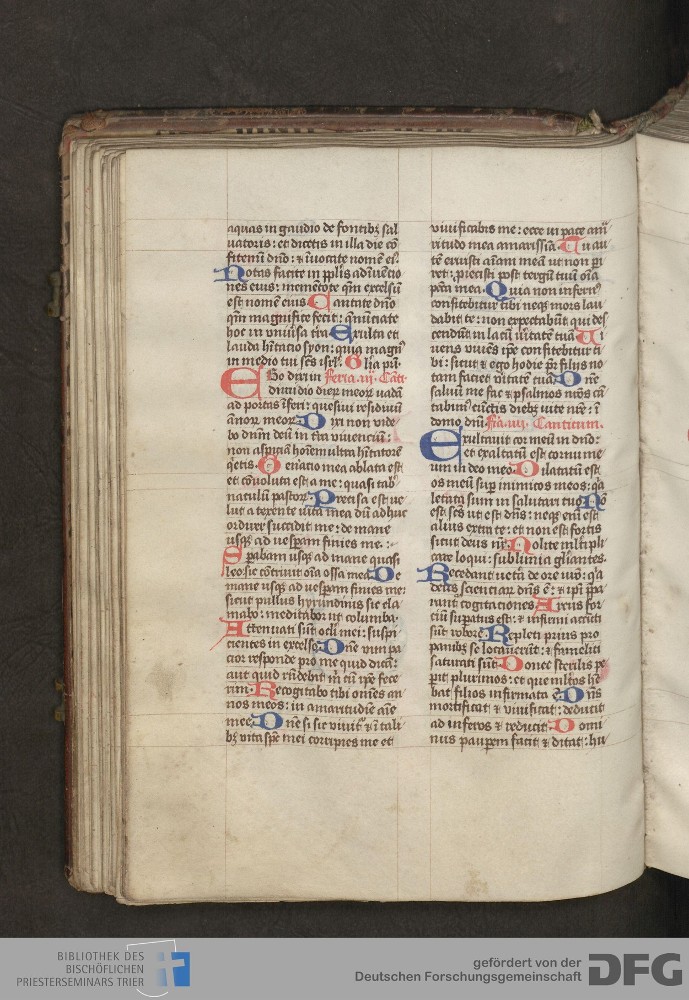 aquas in gaudio de fontibꝫ sal
uatoris : et dicetis in illa die cō
fitemī dn̄o : ⁊ īuocate nomē eiꝰ
Notas facite in pplīs adīuētio
nes eius : memētote qm̄ excelsū
est nomē eius Cantate dn̄o
qm̄ magnifice fecit : ānūciate
hoc in vniūsa t̄ra Exulta et
lauda hītatio syon : quia magnꝰ
in medio tui sc̄s isrl̄. Gl̄ia pr̄i.
Ego dixi in feria .iij. Cāti
dimidio dieꝝ meoꝝ uadā
ad portas īferi : quesiui residuū
ānoꝝ meoꝝ Dixi non vide
bo dnm̄ deū in t̄ra viuenciū :
non aspiciā hoīem ultra hītatorē
q̄etis. Generatio mea ablata est
et cōuoluta est a me : quasi tab̾
naculū pastoꝝ. Precisa est ue
lut a texente uita mea dū adhuc
ordirer succidit me : de mane
usqꝫ ad uesꝑam finies me. :
Sperabam usqꝫ ad mane quasi
leo : sic cōtriuit oīa ossa mea De
mane usqꝫ ad uesꝑam finies me :
sicut pullus hyrundinis sic cla
mabo : meditabor ut columba.
Attenuati sūt oclī mei : suspi
cientes in excelso Dn̄e vim pa
cior responde pro me quid dicā :
aut quid rn̄debit m̄ cū ip̄e fece
rim. Recogitabo tibi omēs an
nos meos : in amaritudīe aīe
mee. Dn̄e si sic viuit̄ ⁊ ī tali
bꝫ vita sp̄s mei corripies me et
viuificabis me : ecce in pace am̄
ritudo mea amarissīa. Tu au
tē eruisti aīam meā ut non ꝑi
ret : ꝓiecisti post tergū tuū oīa
pctā mea. Quia non infernꝰ
confitebitur tibi neqꝫ mors lau
dabit te : non expectabūt qui des
cendūt in lacū ū̄itatē tuā Vi
uens viuēs ip̄e confitebitur ti
bi : sicut ⁊ ego hodie pr̄ filijs no
tam faciet ūitatē tuā. Dn̄e
saluū me fac ⁊ psalmos nr̄os cā
tabimꝰ cūctis diebꝫ uite nr̄e : ī
domo dn̄i Fīa .iiij. Canticum.
Exultauit cor meū in dn̄o :
et exaltatū est cornu me
um in deo meo. Dilatatū est
os meū sup̄ inimicos meos : q̄a
letata sum in salutari tuo. Nō
est sc̄s ut est dn̄s : neqꝫ enī est
alius extra te : et non est fortis
sicut deus nr̄. Nolite ml̄tipli
care loqui : sublimia gl̄iantes.
Recedant uet̄a de ore ur̄o : q̄a
deus scienciaꝝ dn̄s ē : ⁊ ip̄i p̄pa
rant̄ cogitationes Arcus for
ciū suꝑatus est : ⁊ infirmi accīcti
sūt robore. Repleti prius pro
panibꝫ se locauerūt : ⁊ famelici
saturati sūt. Donec sterilis pe
ꝑit plurimos : et que mltos hē
bat filios infirmata ē Dn̄s
mortificat ⁊ viuificat : deducit
ad inferos ⁊ reducit. Domi
nus pauꝑem facit ⁊ ditat : hu
BIBLIOTHEK DES
BISCHÖFLICHEN
PRIESTERSEMINARS TRIER
gefördert von der
Deutschen Forschungsgemeinschaft
DFG